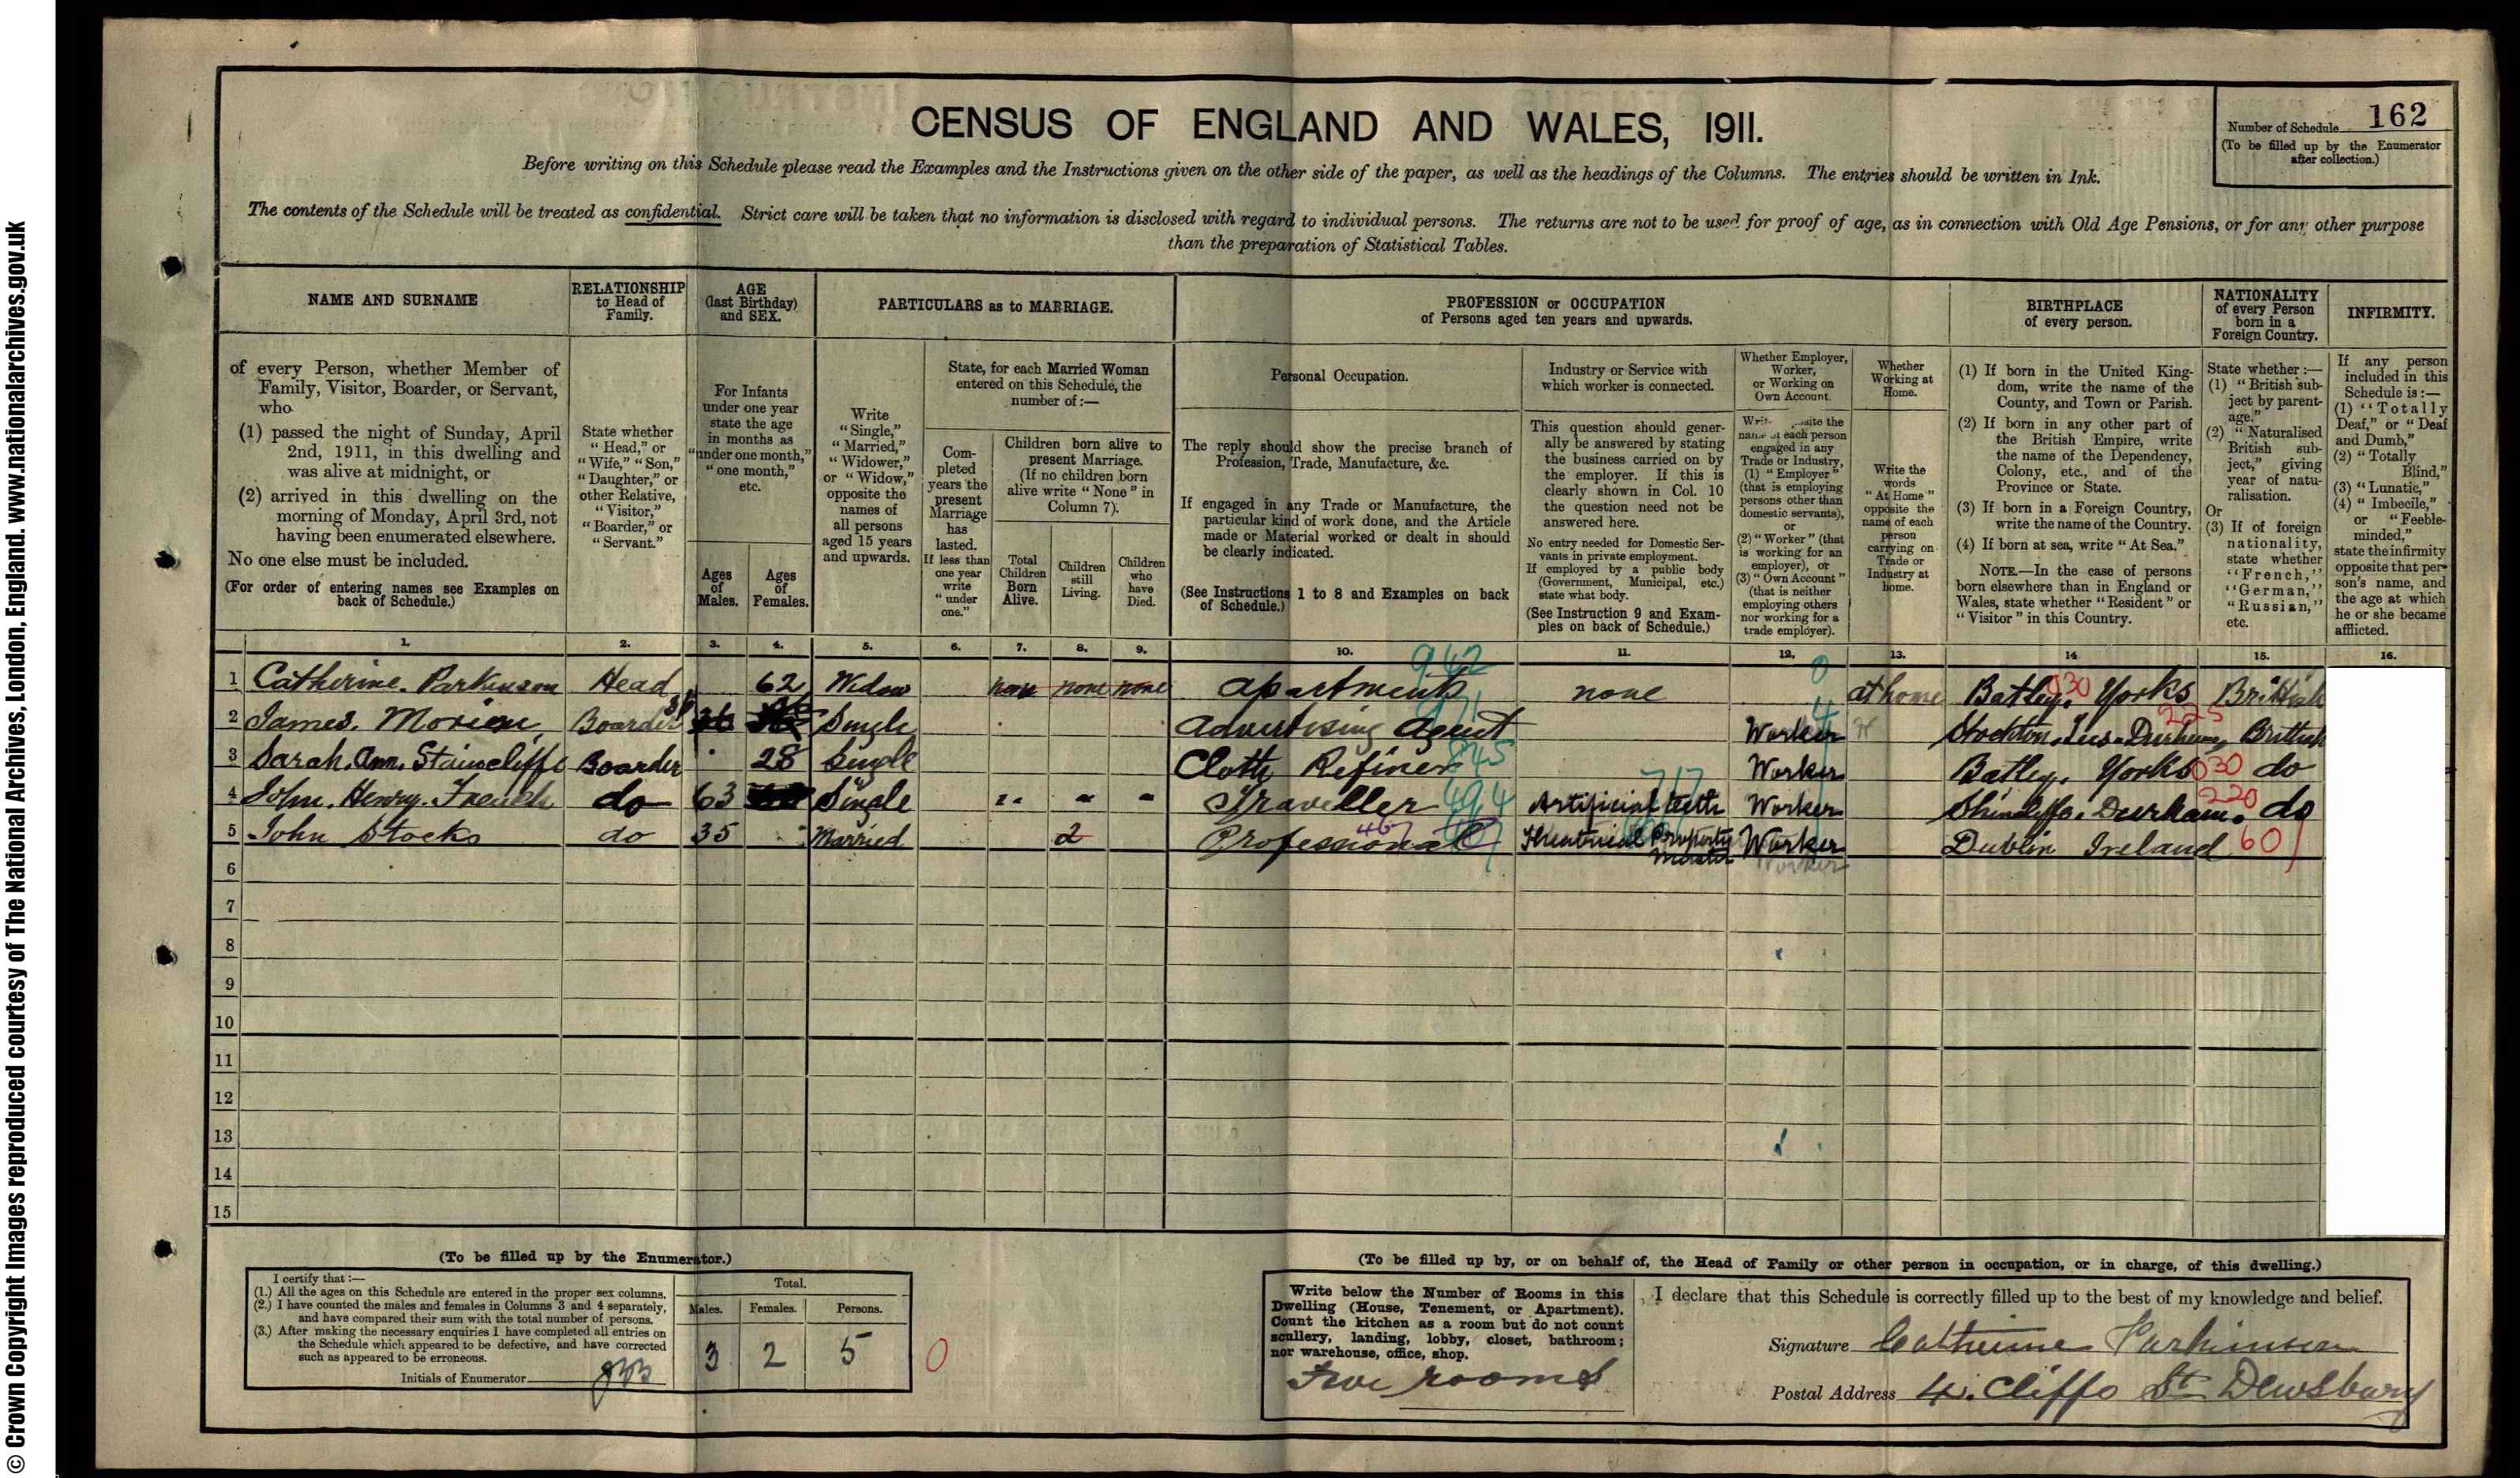 CENSUS OF ENGLAND AND WALES, 1911.
Number of Schedule 162
(To be filled up by the Enumerator
after collection.)
Before writing on this Schedule please read the Examples and the Instructions given on the other side of the paper, as well as the headings of the Columns. The entries should be written in Ink.
The contents of the Schedule will be treated as confidential. Strict care will be taken that no information is disclosed with regard to individual persons. The returns are not to be used for proof of age, as in connection with Old Age Pensions, or for any other purpose
than the preparation of Statistical Tables.
NAME AND SURNAME
of every Person, whether Member of
Family, Visitor, Boarder, or Servant,
who
(1) passed the night of Sunday, April
2nd, 1911, in this dwelling and
was alive at midnight, or
(2) arrived in this dwelling on the
morning of Monday, April 3rd, not
having been enumerated elsewhere.
No one else must be included.
(For order of entering names see Examples on
back of Schedule.)
RELATIONSHIP
to Head of
Family.
State whether
"Head," or
"Wife," "Son,"
"Daughter," or
other Relative,
"Visitor,"
"Boarder," or
"Servant."
AGE
(last Birthday)
and SEX.
For Infants
under one year
state the age
in months as
"under one month,"
"one month,"
etc.
Ages
of
Males.
Ages
of
Females.
PARTICULARS as to MARRIAGE.
Write
"Single,"
"Married,"
"Widower,"
or "Widow,"
opposite the
names of
all persons
aged 15 years
and upwards.
State, for each Married Woman
entered on this Schedule, the
number of:—
Com-
pleted
years the
present
Marriage
has
lasted.
If less than
one year
write
"under
one."
Children born alive to
present Marriage.
(If no children born
alive write "None" in
Column 7).
Total
Children
Born
Alive.
Children
still
Living.
Children
who
have
Died.
PROFESSION or OCCUPATION
of Persons aged ten years and upwards.
Personal Occupation.
The reply should show the precise branch of
Profession, Trade, Manufacture, &c.
If engaged in any Trade or Manufacture, the
particular kind of work done, and the Article
made or Material worked or dealt in should
be clearly indicated.
(See Instructions 1 to 8 and Examples on back
of Schedule.)
Industry or Service with
which worker is connected.
This question should gener-
ally be answered by stating
the business carried on by
the employer. If this is
clearly shown in Col. 10
the question need not be
answered here.
No entry needed for Domestic Ser-
vants in private employment.
If employed by a public body
(Government, Municipal, etc.)
state what body.
(See Instruction 9 and Exam-
ples on back of Schedule.)
Whether Employer,
Worker,
or Working on
Own Account.
name of each person
engaged in any
Trade or Industry,
(1) "Employer"
(that is employing
persons other than
domestic servants),
or
(2) "Worker" (that
is working for an
employer), or
(3) "Own Account"
(that is neither
employing others
nor working for a
trade employer).
Whether
Working at
Home.
Write the
words
"At Home"
opposite the
name of each
person
carrying on
Trade or
Industry at
home.
BIRTHPLACE
of every person.
(1) If born in the United King-
dom, write the name of the
County, and Town or Parish.
(2) If born in any other part of
the British Empire, write
the name of the Dependency,
Colony, etc., and of the
Province or State.
(3) If born in a Foreign Country,
write the name of the Country.
(4) If born at sea, write "At Sea."
NOTE.—In the case of persons
born elsewhere than in England or
Wales, state whether "Resident" or
"Visitor" in this Country.
NATIONALITY
of every Person
born in a
Foreign Country.
State whether:—
(1) "British sub-
ject by parent-
age,"
(2) "Naturalised
British sub-
ject," giving
year of natu-
ralisation.
Or
(3) If of foreign
nationality,
state whether
"French,"
"German,"
"Russian,"
etc.
INFIRMITY.
If any person
included in this
Schedule is:—
(1) "Totally
Deaf," or "Deaf
and Dumb,"
(2) "Totally
Blind,"
(3) "Lunatic,"
(4) "Imbecile,"
or "Feeble-
minded,"
state the infirmity
opposite that per-
son's name, and
the age at which
he or she became
afflicted.
1. 2. 3. 4. 5. 6. 7. 8. 9. 10. 11. 12. 13. 14 15. 16.
1 Catherine. Parkinson Head 62 Widow none none none apartments 942 none 0 at home Batley. 030 Yorks British
2 James. Boarder Single Advertising Agent Worker Stockton. Tees. Durham, 225 British
3 Sarah. Ann. Staincliffe Boarder 28 Single Cloth Refiner 845 Worker Batley. Yorks 030 do
4 John. Henry. French do 63 Single Traveller 494 Artificial teeth 717 Worker Shincliffe. Durham. 220 do
5 John Stocks do 35 Married 2 Professional 467 Theatrical Property Master Worker Dublin Ireland 601
Worker
6
7
8
9
10
11
12
13
14
15
(To be filled up by the Enumerator.)
I certify that:—
(1.) All the ages on this Schedule are entered in the proper sex columns.
(2.) I have counted the males and females in Columns 3 and 4 separately,
and have compared their sum with the total number of persons.
(3.) After making the necessary enquiries I have completed all entries on
the Schedule which appeared to be defective, and have corrected
such as appeared to be erroneous.
Initials of Enumerator
Total.
Males. Females. Persons.
3 2 5 0
(To be filled up by, or on behalf of, the Head of Family or other person in occupation, or in charge, of this dwelling.)
Write below the Number of Rooms in this
Dwelling (House, Tenement, or Apartment).
Count the kitchen as a room but do not count
scullery, landing, lobby, closet, bathroom;
nor warehouse, office, shop.
Five rooms
I declare that this Schedule is correctly filled up to the best of my knowledge and belief.
Signature Catherine Parkinson
Postal Address 4. Cliffe St Dewsbury
© Crown Copyright Images reproduced courtesy of The National Archives, London, England. www.nationalarchives.gov.uk